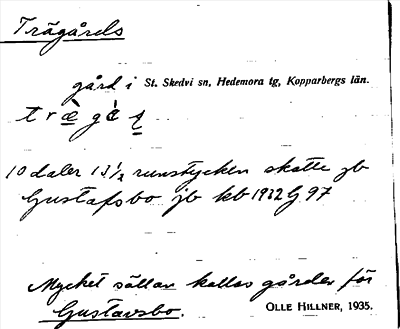 Trägårds
gård i St. Skedvi sn, Hedemora tg, Kopparbergs län.
10 daler 13½ runstycken skatte jb
Gustafsbo jb kb 1932 G 97
Mycket sällan kallas gården för
Gustavsbo. OLLE HILLNER, 1935.